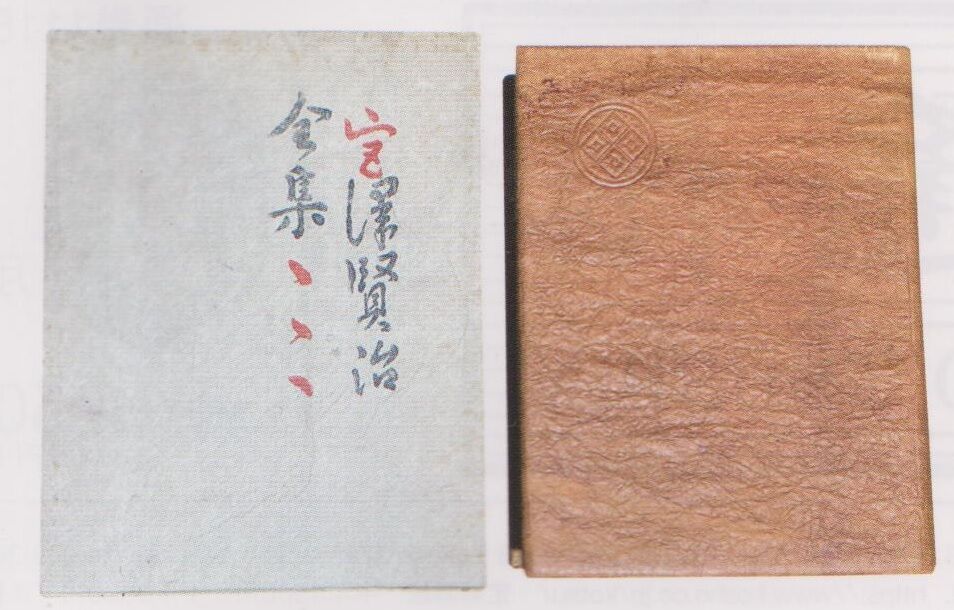 宮澤賢治
全集、、、